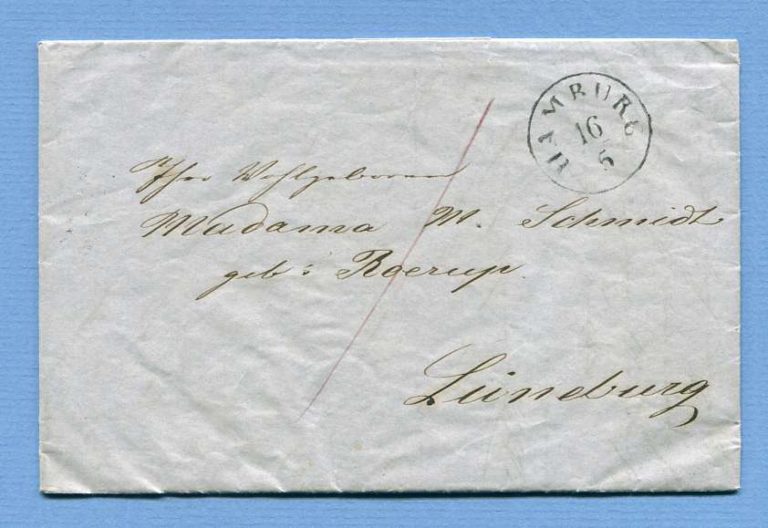 HAMBURG
16
5
Ihro Wohlgeboren
Madama M. Schmidt
geb: Roerup.
Lüneburg